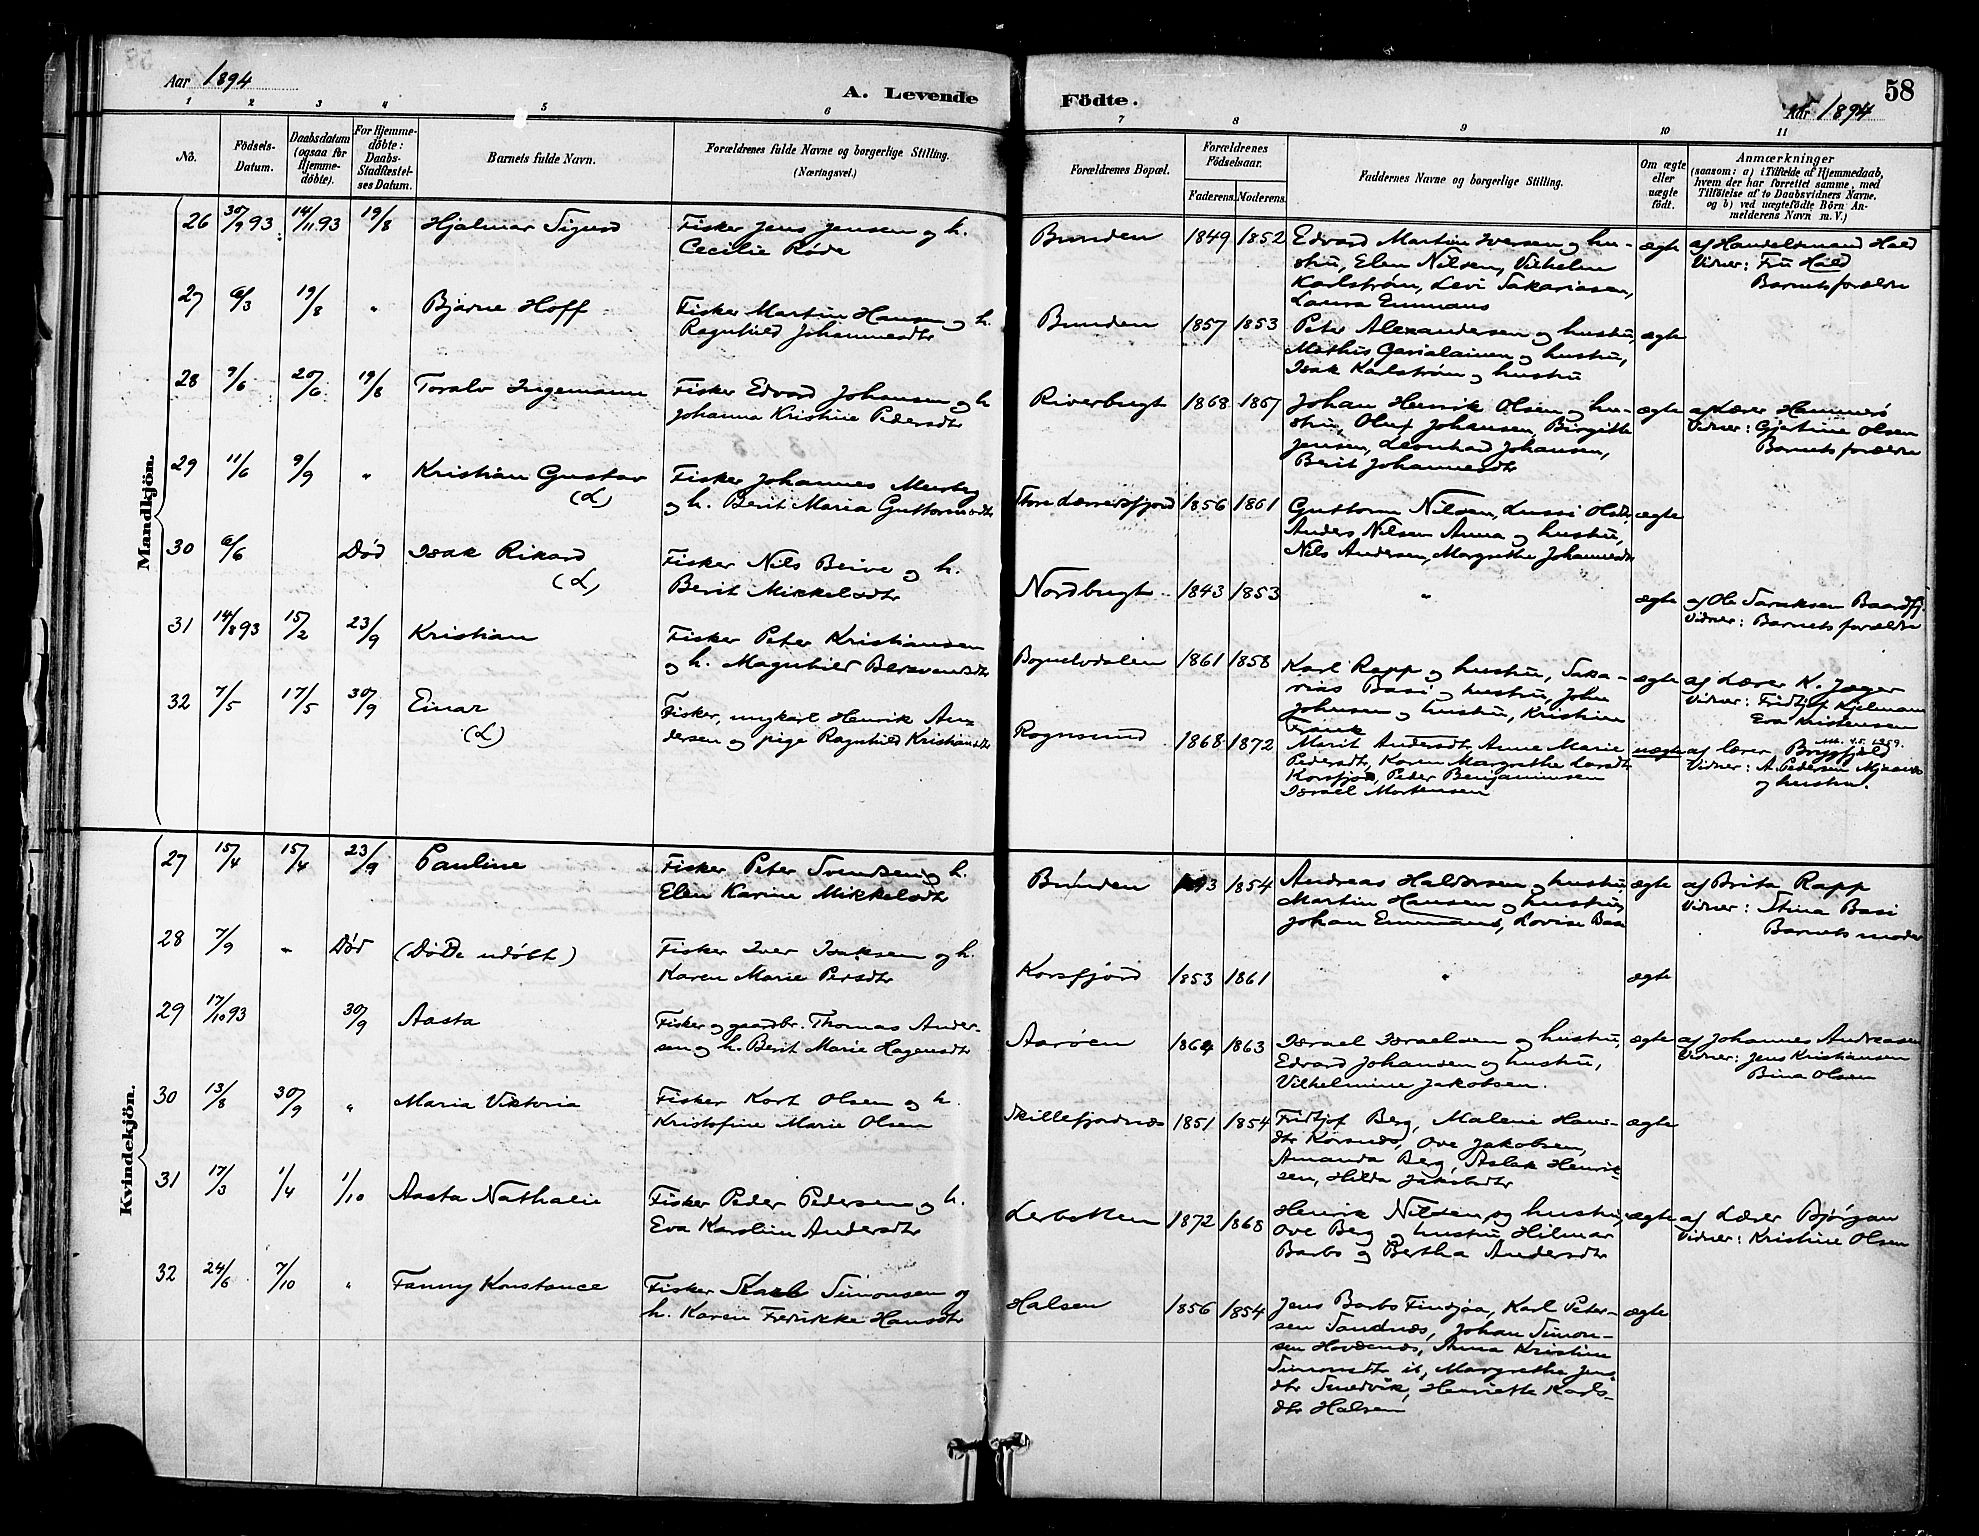 Aar 1894
A. Levende
Födte.
58
Aar 1894
1 2 3 4 5 6 7 8 9 10 11
No.
Födsels-
Datum.
Daabsdatum
(ogsaa for
Hjemme-
döbte).
For Hjemme-
döbte:
Daabs-
Stadfæstel-
ses Datum.
Barnets fulde Navn.
Forældrenes fulde Navne og borgerlige Stilling.
(Næringsvei.)
Forældrenes Bopæl.
Forældrenes
Födselsaar.
Faderens. Moderens.
Faddernes Navne og borgerlige Stilling.
Om ægte
eller
uægte
födt.
Anmærkninger
(saasom: a) i Tilfælde af Hjemmedaab,
hvem der har forrettet samme, med
Tilföielse af to Daabsvidners Navne.
og b) ved uægtefödte Börn An-
melderens Navn m. V.)
Mandkjön.
26 30/9 93 14/11 93 19/8 Hjalmar Sigurd
Fisker Jens Jensen og h.
Cecilie Røde
Bunden 1849 1852
Edvard Martin Iversen og hu-
stru, Elen Nilsen, Vilhelm
Karlstrøm, Levi Sakariasen,
Laura Emmaus
ægte
af Handelsmand Hald
Vidner: Fru Hald
Barnets forældre
27 6/3 19/8 " Bjarne Hoff
Fisker Martin Hansen og h.
Ragnhild Johannesdtr
Bunden 1857 1853
Peter Alexandersen og hustru,
Mathis Gavialainen og hustru,
Isak Karlstrøm og hustru
ægte
28 9/6 20/6 19/8 Toralv Ingemann
Fisker Edvard Johansen og h
Johanna Kristine Pedersdtr
Riverbugt 1868 1867
Johan Henrik Olsen og hu-
stru, Oluf Johansen, Birgitte
Jensen, Leonhard Johansen,
Berit Johannesdtr
ægte
af Lærer Hammerø
Vidner: Gjertine Olsen
Barnets forældre
29 11/6 9/9 " Kristian Gustav
(L)
Fisker Johannes Murberg
og h. Berit Maria Guttormsdtr
Store Lerresfjord 1856 1861
Guttorm Nilsen, Lussi Olsdtr,
Anders Nilsen Anna og hustru,
Nils Andersen, Margrethe Johannesdtr
ægte
30 6/6 Død Isak Rikard
(L)
Fisker Nils Beive og h.
Berit Mikkelsdtr
Nordbugt 1843 1853
"
ægte
af Ole Sarriksen Baardfj.
Vidner: Barnets forældre
31 14/8 93 15/2 23/9 Kristian
Fisker Peter Kristiansen
og h. Magnhild Beravensdtr
Bognelvdalen 1861 1858
Karl Rapp og hustru, Saka-
rias Basi og hustru, John
Johnsen og hustru, Kristine
Frank
ægte
af Lærer K. Jæger
Vidner: Fridtjof Kjelmann
Eva Kristensen
32 7/5 17/5 30/9 Einar
(L)
Fisker, ungkarl Henrik An-
dersen og pige Ragnhild Kristiansdtr
Rognsund 1868 1872
Marit Andersdtr, Anne Marie
Pedersdtr, Karen Margrethe Larsdtr
Korsfjord, Peder Benjaminsen
Israel Mortensen
uægte
af lærer Brygfjeld
Vidner: A. Pedersen Mjaanes
og hustru.
Kvindekjön.
27 15/4 15/4 23/9 Pauline
Fisker Peter Svendsen og h.
Elen Karine Mikkelsdtr
Bunden 1854
Andreas Haldorsen og hustru
Martin Hansen og hustru,
Johan Emmaus, Lovise Basi
ægte
af Brita Rapp
Vidner: Stina Basi
Barnets moder
28 7/9 " Død (Døde udøbt)
Fisker Iver Isaksen og h.
Karen Marie Persdtr
Korsfjord 1853 1861
"
ægte
29 17/10 93 30/9 Aasta
Fisker og gaardbr. Thomas Ander-
sen og h. Berit Marie Hagensdtr
Aarøen 1864 1863
Israel Israelsen og hustru,
Edvard Johansen og hustru,
Vilhelmine Jakobsen.
ægte
af Johannes Andreasen
Vidner: Jens Kristiansen
Bina Olsen
30 13/8 30/9 " Maria Viktoria
Fisker Kort Olsen og h.
Kristofine Marie Olsen
Skillefjordnæs 1851 1854
Fridtjof Berg, Malene Hans-
dtr Korsnæs, Ove Jakobsen,
Amanda Berg, Aslak Henrik-
sen, Hilda Jakobsdtr
ægte
31 17/3 1/4 1/10 Aasta Nathalie
Fisker Peder Pedersen og h.
Eva Karoline Andersdtr
Lerbotten 1872 1868
Henrik Nilsen og hustru,
Ove Berg og hustru Hilmar
Barbo og Bertha Andersdtr
ægte
af Lærer Bjørgan
Vidner: Kristine Olsen
32 24/6 7/10 " Fanny Konstance
Fisker Karl Simonsen og
h. Karen Fredrikke Hansdtr
Halsen 1856 1854
Jens Barbo Findjøa, Karl Peter-
sen Sandnæs, Johan Simon-
sen Hovdenæs, Anna Kristine
Simonsdtr ib, Margrethe Jens-
dtr Smedvik, Henriette Karls-
dtr Halsen
ægte